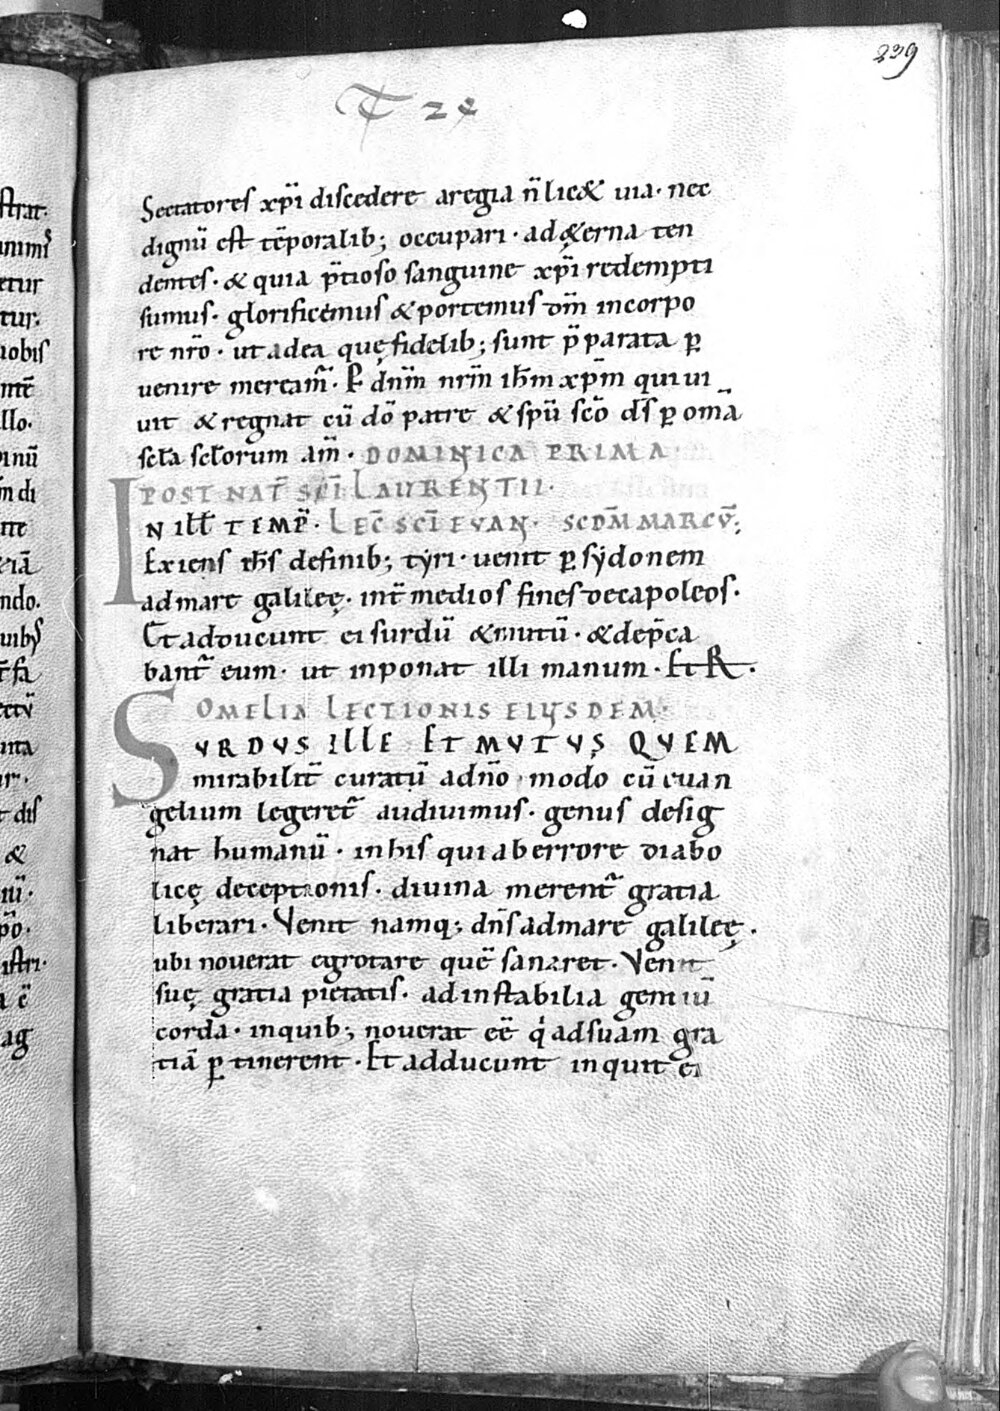 239
Sectatores xp̄i discedere aregia n̄ lic& uia· nec
dignū est tēporalib; occupari· ad&erna ten
dentes· & quia p̄tioso sanguine xp̄i redempti
sumus· glorificemus &portemus dm̄ incorpo
re nr̄o· ut adea quę fidelib; sunt p̄parata ꝑ
uenire meream̄· P dnm̄ nrm̄ ih̄m xp̄m qui ui
uit & regnat cū dō patre & spū scō ds̄ ꝑ omā
scl̄a scl̄orum am̄· DOMINICA PRIMA
POST NAT̄ SCĪ LAURENTII·
IN ILL̄ TEMP̄· LEC̄ SCĪ EVAN· SCDM̄ MARCV̄;
Exiens ih̄s definib; tyri· uenit ꝑ sydonem
admare galileę· int̄ medios fines decapoleos·
Et adducunt ei surdū &mutū· &dep̄ca
bant̄ eum· ut inponat illi manum· Et R·
OMELIA LECTIONIS EIUSDEM·
SVRDVS ILLE ET MVTVS QVEM
mirabilit̄ curatū adn̄o modo cū euan
gelium legeret̄ audiuimus· genus desig
nat humanū· inhis qui aberrore diabo
licę deceptionis· diuina merent̄ gratia
liberari· Venit namq; dn̄s admare galileę·
ubi nouerat egrotare quē sanaret· Venit
suę gratia pietatis· adinstabilia gentiū
corda· inquib; nouerat eē q́ adsuam gra
tiā ꝑtinerent· Et adducunt inquit ei